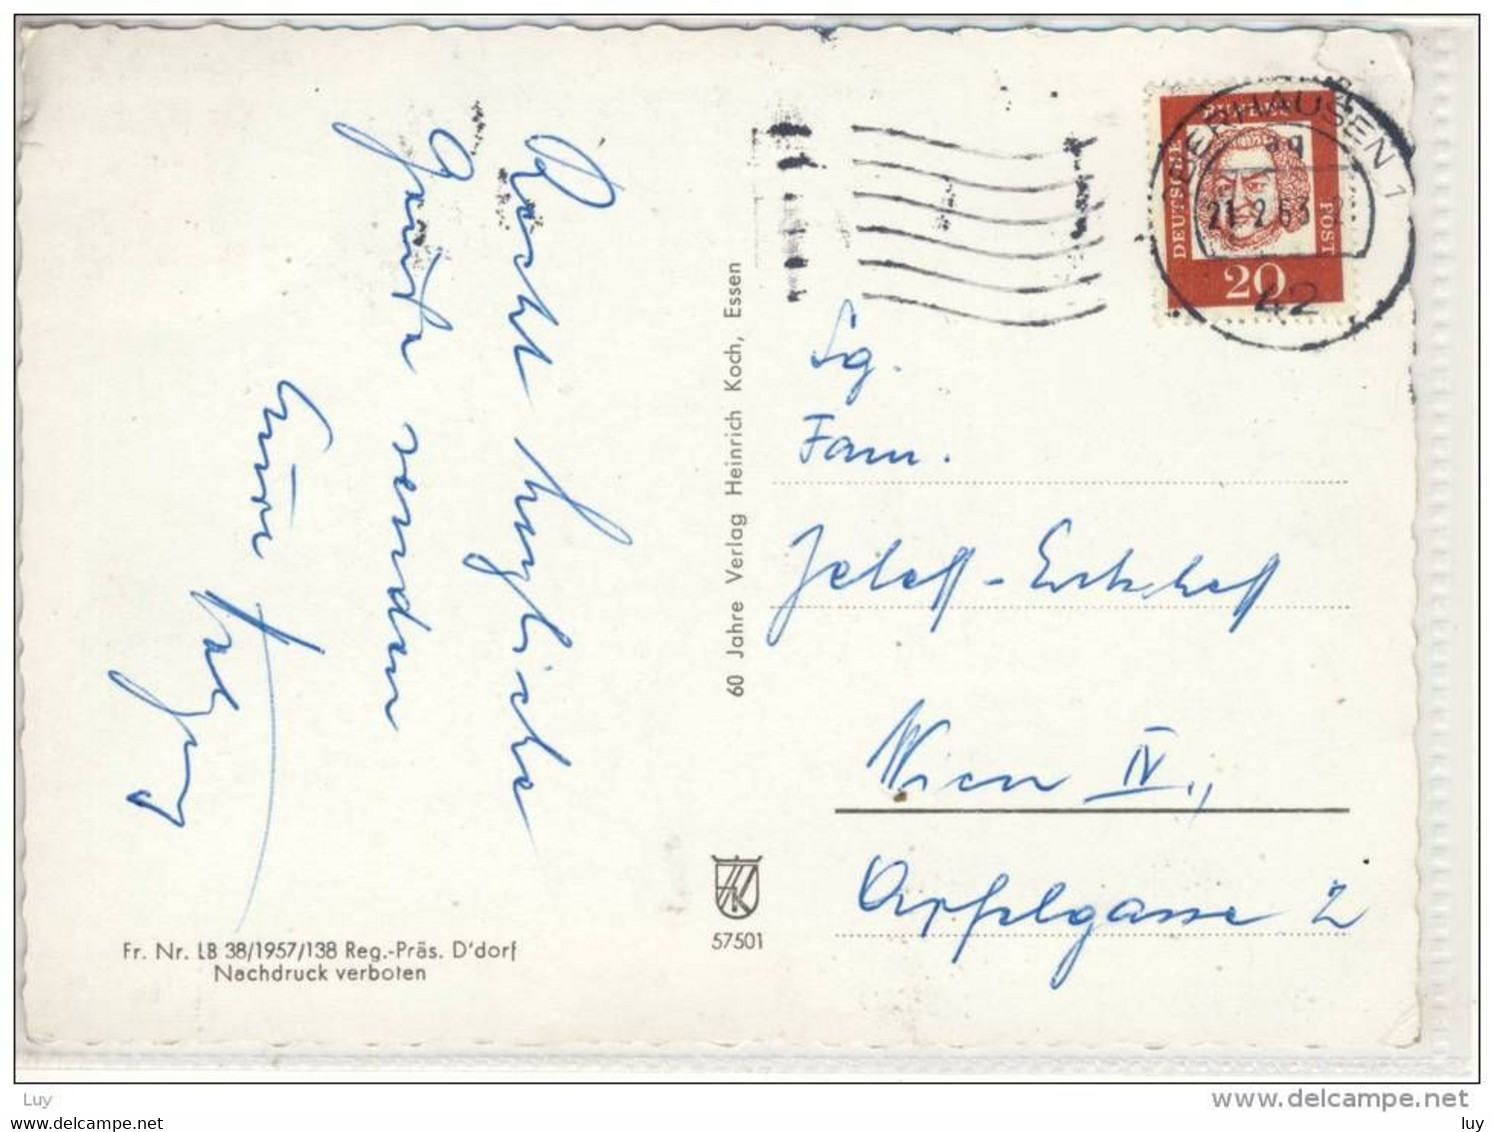 Recht herzliche
Grüße senden
Eure
60 Jahre Verlag Heinrich Koch, Essen
Fr. Nr. LB 38/1957/138 Reg.-Präs. D'dorf
Nachdruck verboten
57501
OBERHAUSEN 1
ag
21.2.63
42
DEUTSCHE
POST
20
Fam.
Wien IV.,
Apfelgasse 2
Luy
www.delcampe.net
www.delcampe.net
luy